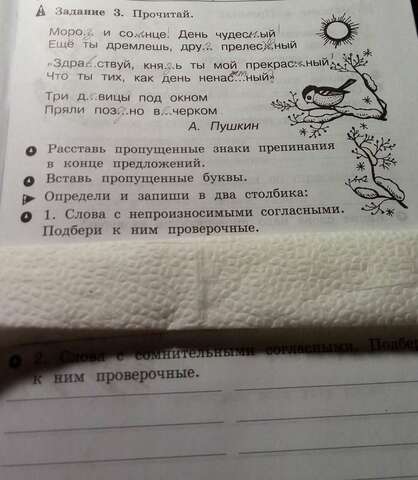 Задание 3. Прочитай.
Моро.. и со..нце! День чудес..ый
Ещё ты дремлешь, дру.. прелес..ный
«Здра..ствуй, кня..ь ты мой прекрас..ный
Что ты тих, как день ненас..ный»
Три д..вицы под окном
Пряли поз..но в..черком
А. Пушкин
Расставь пропущенные знаки препинания
в конце предложений.
Вставь пропущенные буквы.
Определи и запиши в два столбика:
1. Слова с непроизносимыми согласными.
Подбери к ним проверочные.
2. Слова с сомнительными согласными. Подбер
к ним проверочные.